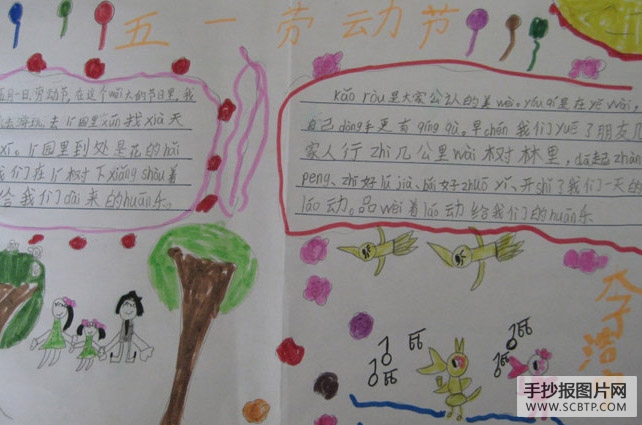 五一劳动节
五月一日,劳动节,在这个的节日里,我
去公园里xún找xià天
公园里到处是花的hǎi
我们在树下xiǎng shòu着
给我们dài来的huān乐。
kǎo ròu是大家公认的美wèi。yóu qí是在yě wài,
自己dòng手更有qíng qù。早chén我们yuē了朋友
家人行zhì几公里wài树林里,dā起zhàng
peng、zhī好lú jià、bǎi好zhuō yǐ、开shǐ了我们一天的
láo动。品wèi着láo动给我们的huān乐
手抄报图片网
WWW.SCBTP.COM